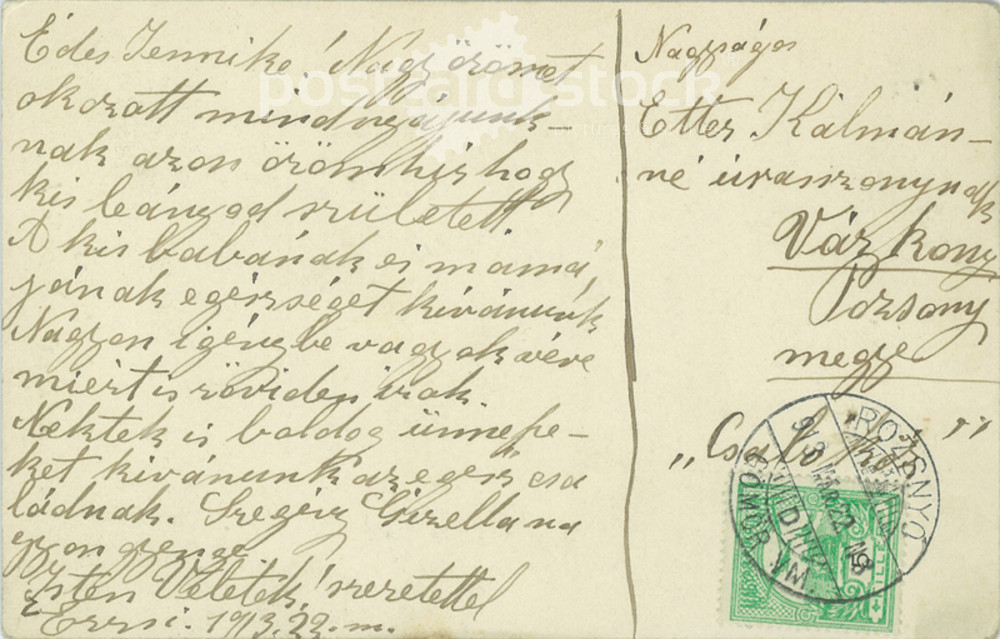 Édes Jennike! Nagy örömet
okozott mindnyájunk-
nak azon örömhír hogy
kis leányod született.
A kis babának és mamá,
jának egészséget kívánunk
Nagyon igénybe vagyok véve
miért is röviden írok.
Nektek is boldog ünnepe-
ket kivánunk az egész csa
ládnak. Szegény Gizella na
gyon gyenge
Isten Veletek! szeretettel
Erzsi. 1913.22.m.
Nagyságos
Etter Kálmán-
né úrasszonynak
Várkony
Pozsony
megye
„Csaló "
ROZSNYÓ
913 MÁR 22
GÖMÖR VM.
FILLÉR
postcard stock